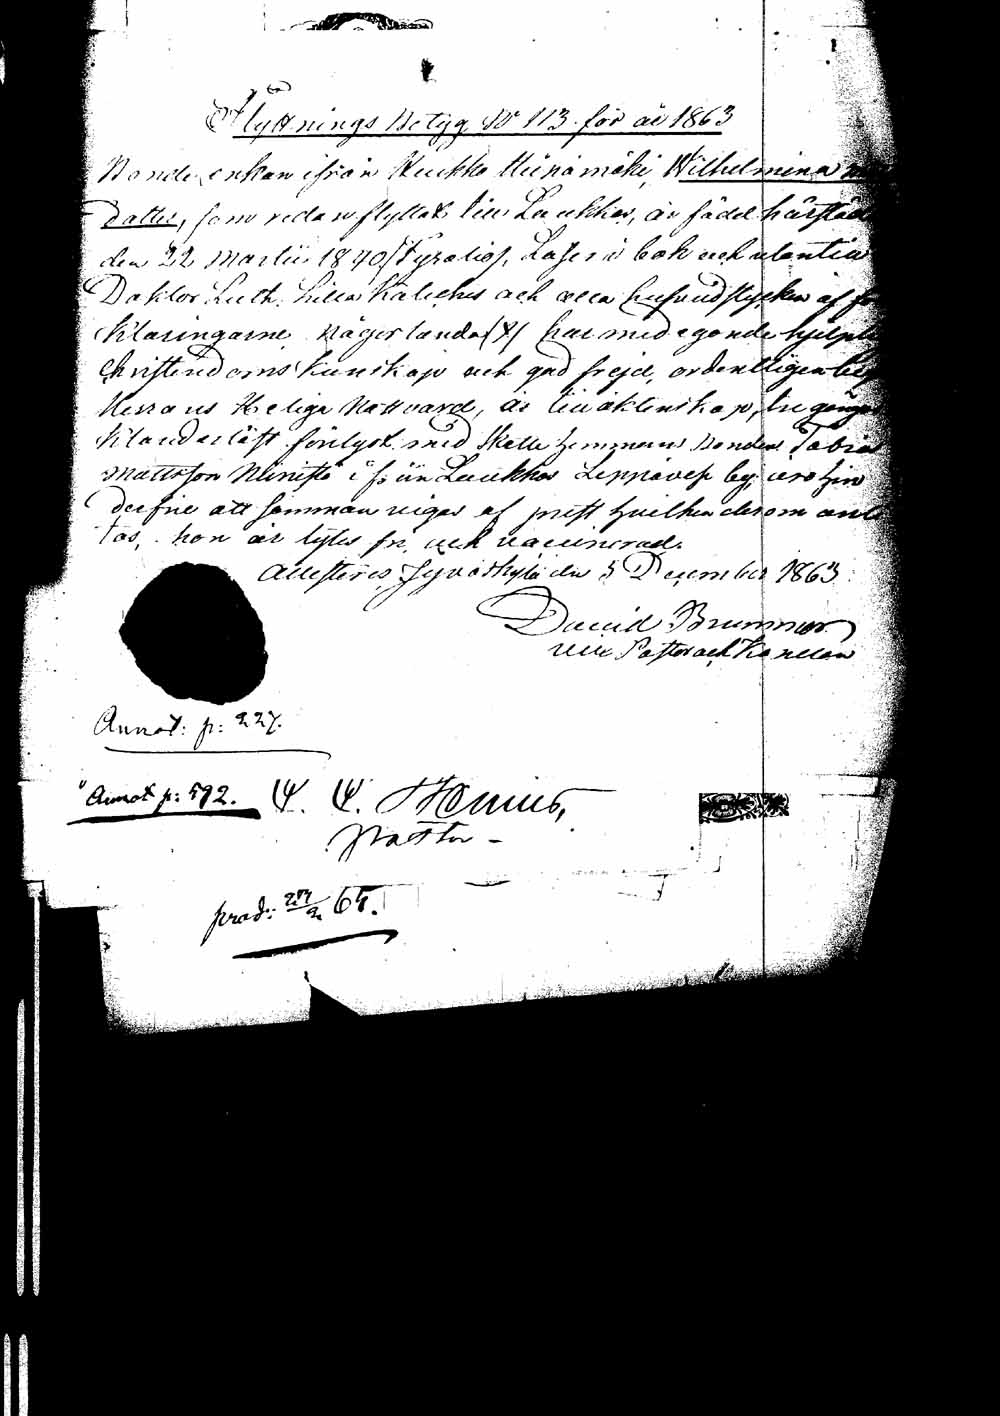 Flyttnings Betyg No 113 för år 1863
Bonde enkan ifrån Heinämäki, Wilhelmina
dotter, som redan flyttat till Laukkas, är född härstädes
den 22 Martii 1840 /Fyratio/, Läser i bok och utantill
Doktor Luth. Lilla Kateches och hufvudstycken af
klaringarne någorlunda (x) har med egande hjelplig
Christendoms kunskap och god frejd, ordentligen
Herrans Heliga Nattvard, är till äktenskap, tre gånger
Klanderlöst förlyst med Skatte hemmans Bonden Tobias
Mattsson ifrån Laukkas Leppäves by,
derfrie att samman viges af prest hvilken derom anli
tas, hon är lytes fri och vaccinerad.
Attesteras, Jyväskylä den 5 December 1863
David Brummer
vice Pastor och
Annot: p: 227.
Annot p: 592.
Pastor
prod: 65.